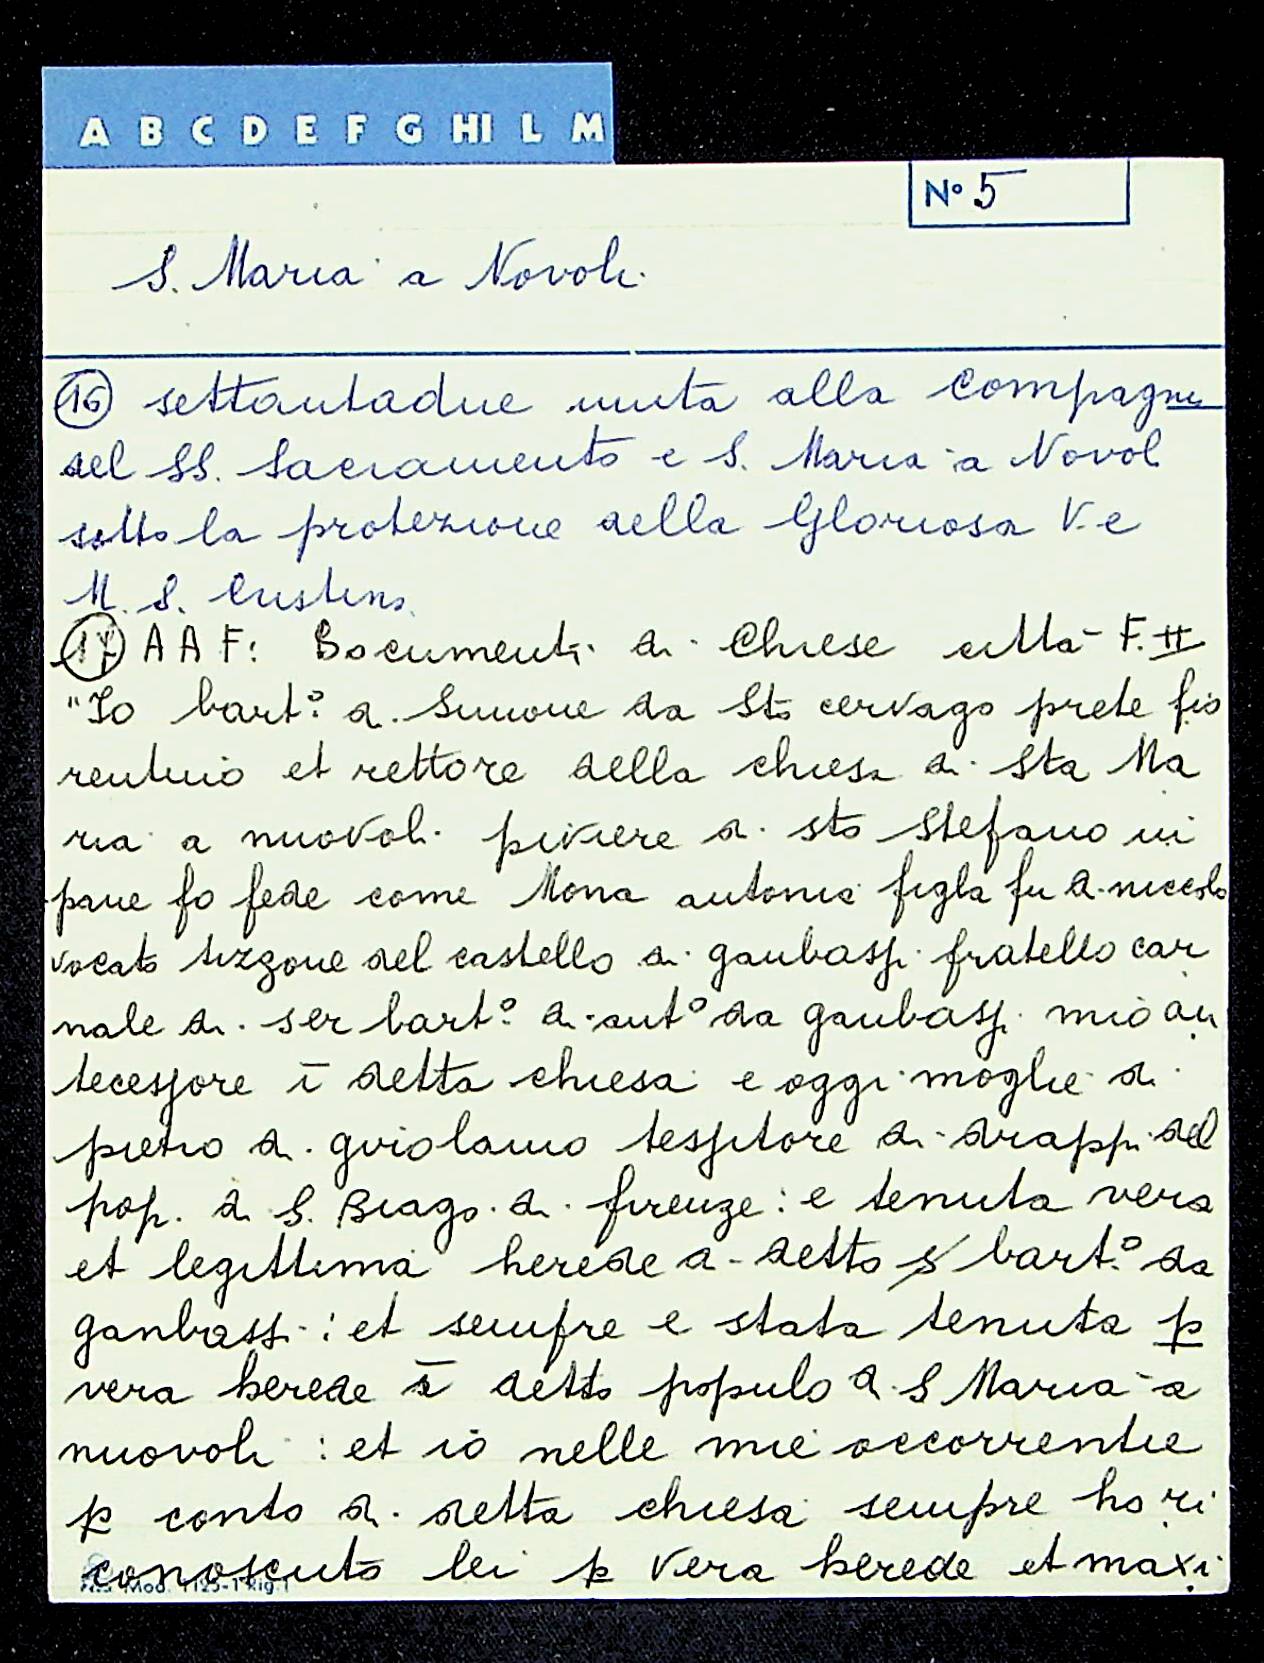 A B C D E F G HI L M
Nº 5
S. Maria a Novoli
16 settantadue unita alla Compagnia
del SS. Sacramento e S. Maria a Novol
sotto la protezione della Gloriosa V. e
M. S. Cristina
17 A A F: Documenti di Chiese città F. II
"Io bart.º di Simone da Sto cervago prete fio
rentino et rettore della chiesa di Sta Ma
ria a nuovoli piviere di sto Stefano in
pane fo fede come Mona antonia figla fu di niccolo
vocato tizzone del castello di ganbassi fratello car
nale di ser bart.º di antº da ganbassi mio an
tecessore ī detta chiesa e oggi moglie di
pietro di girolamo tessitore di drappi del
pop. di S. Biago di firenze: e tenuta vera
et legittima herede di detto s bart.º da
ganbassi: et sempre e stata tenuta p
vera herede ī detto populo di S Maria a
nuovoli: et io nelle mie occorrentie
p conto di detta chiesa sempre ho ri
conosciuto lei p vera herede et maxi
Mod. 1125-1 Rig.1